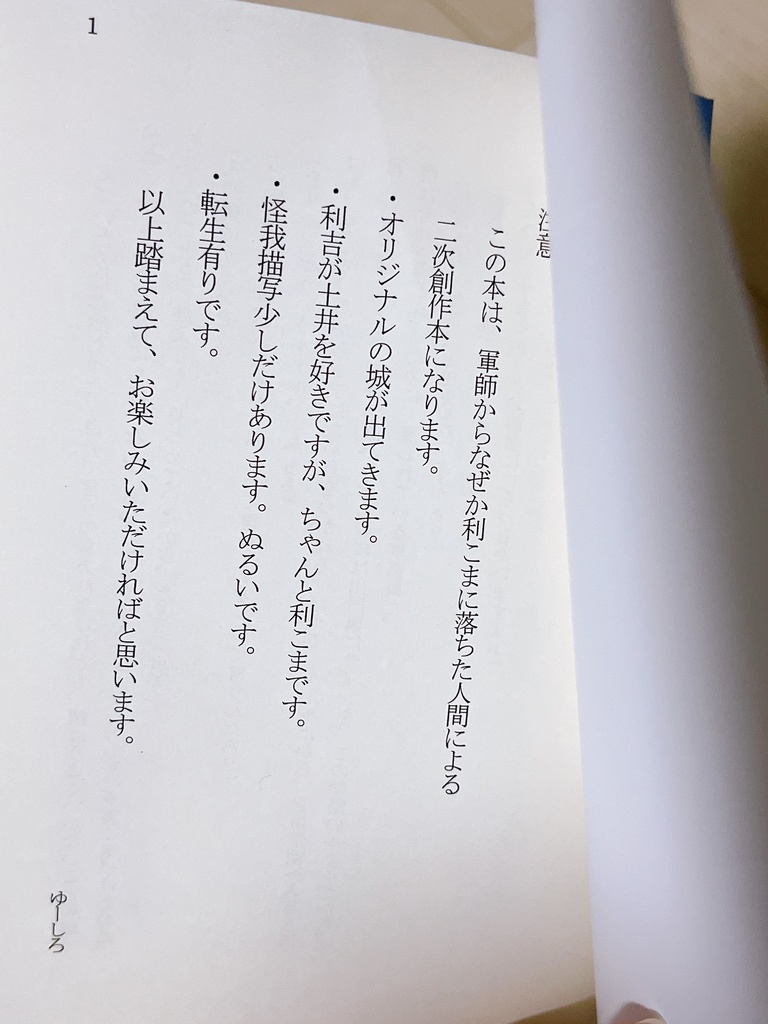 1
注意
この本は、軍師からなぜか利こまに落ちた人間による
二次創作本になります。
・オリジナルの城が出てきます。
・利吉が土井を好きですが、ちゃんと利こまです。
・怪我描写少しだけあります。ぬるいです。
・転生有りです。
以上踏まえて、お楽しみいただければと思います。
ゆーしろ